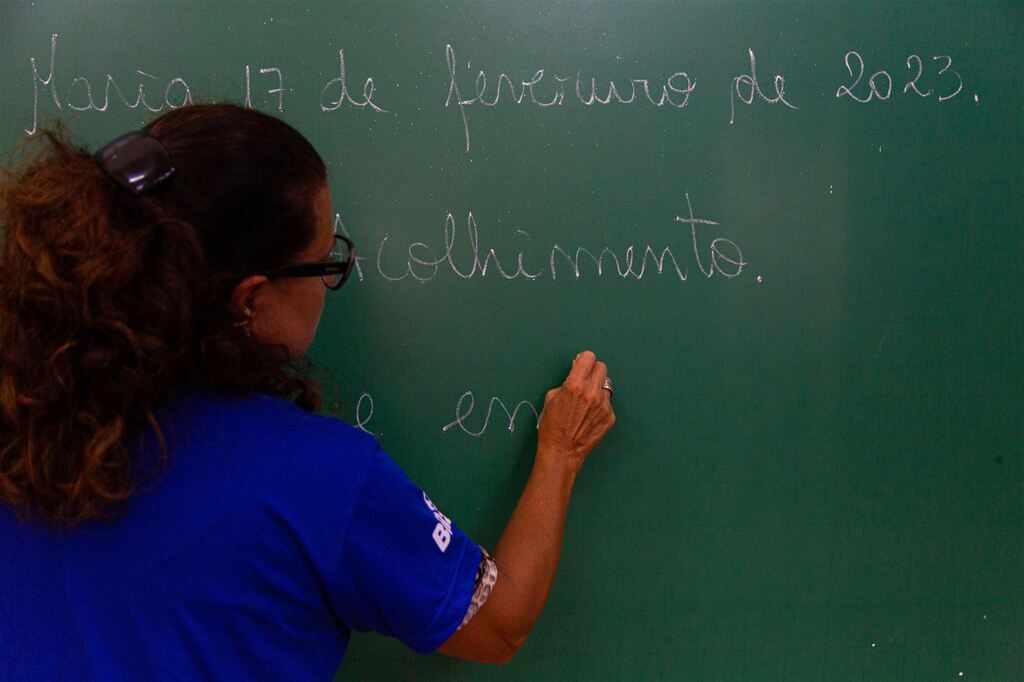 Maria 17 de fevereiro de 2023.
Acolhimento.
e em